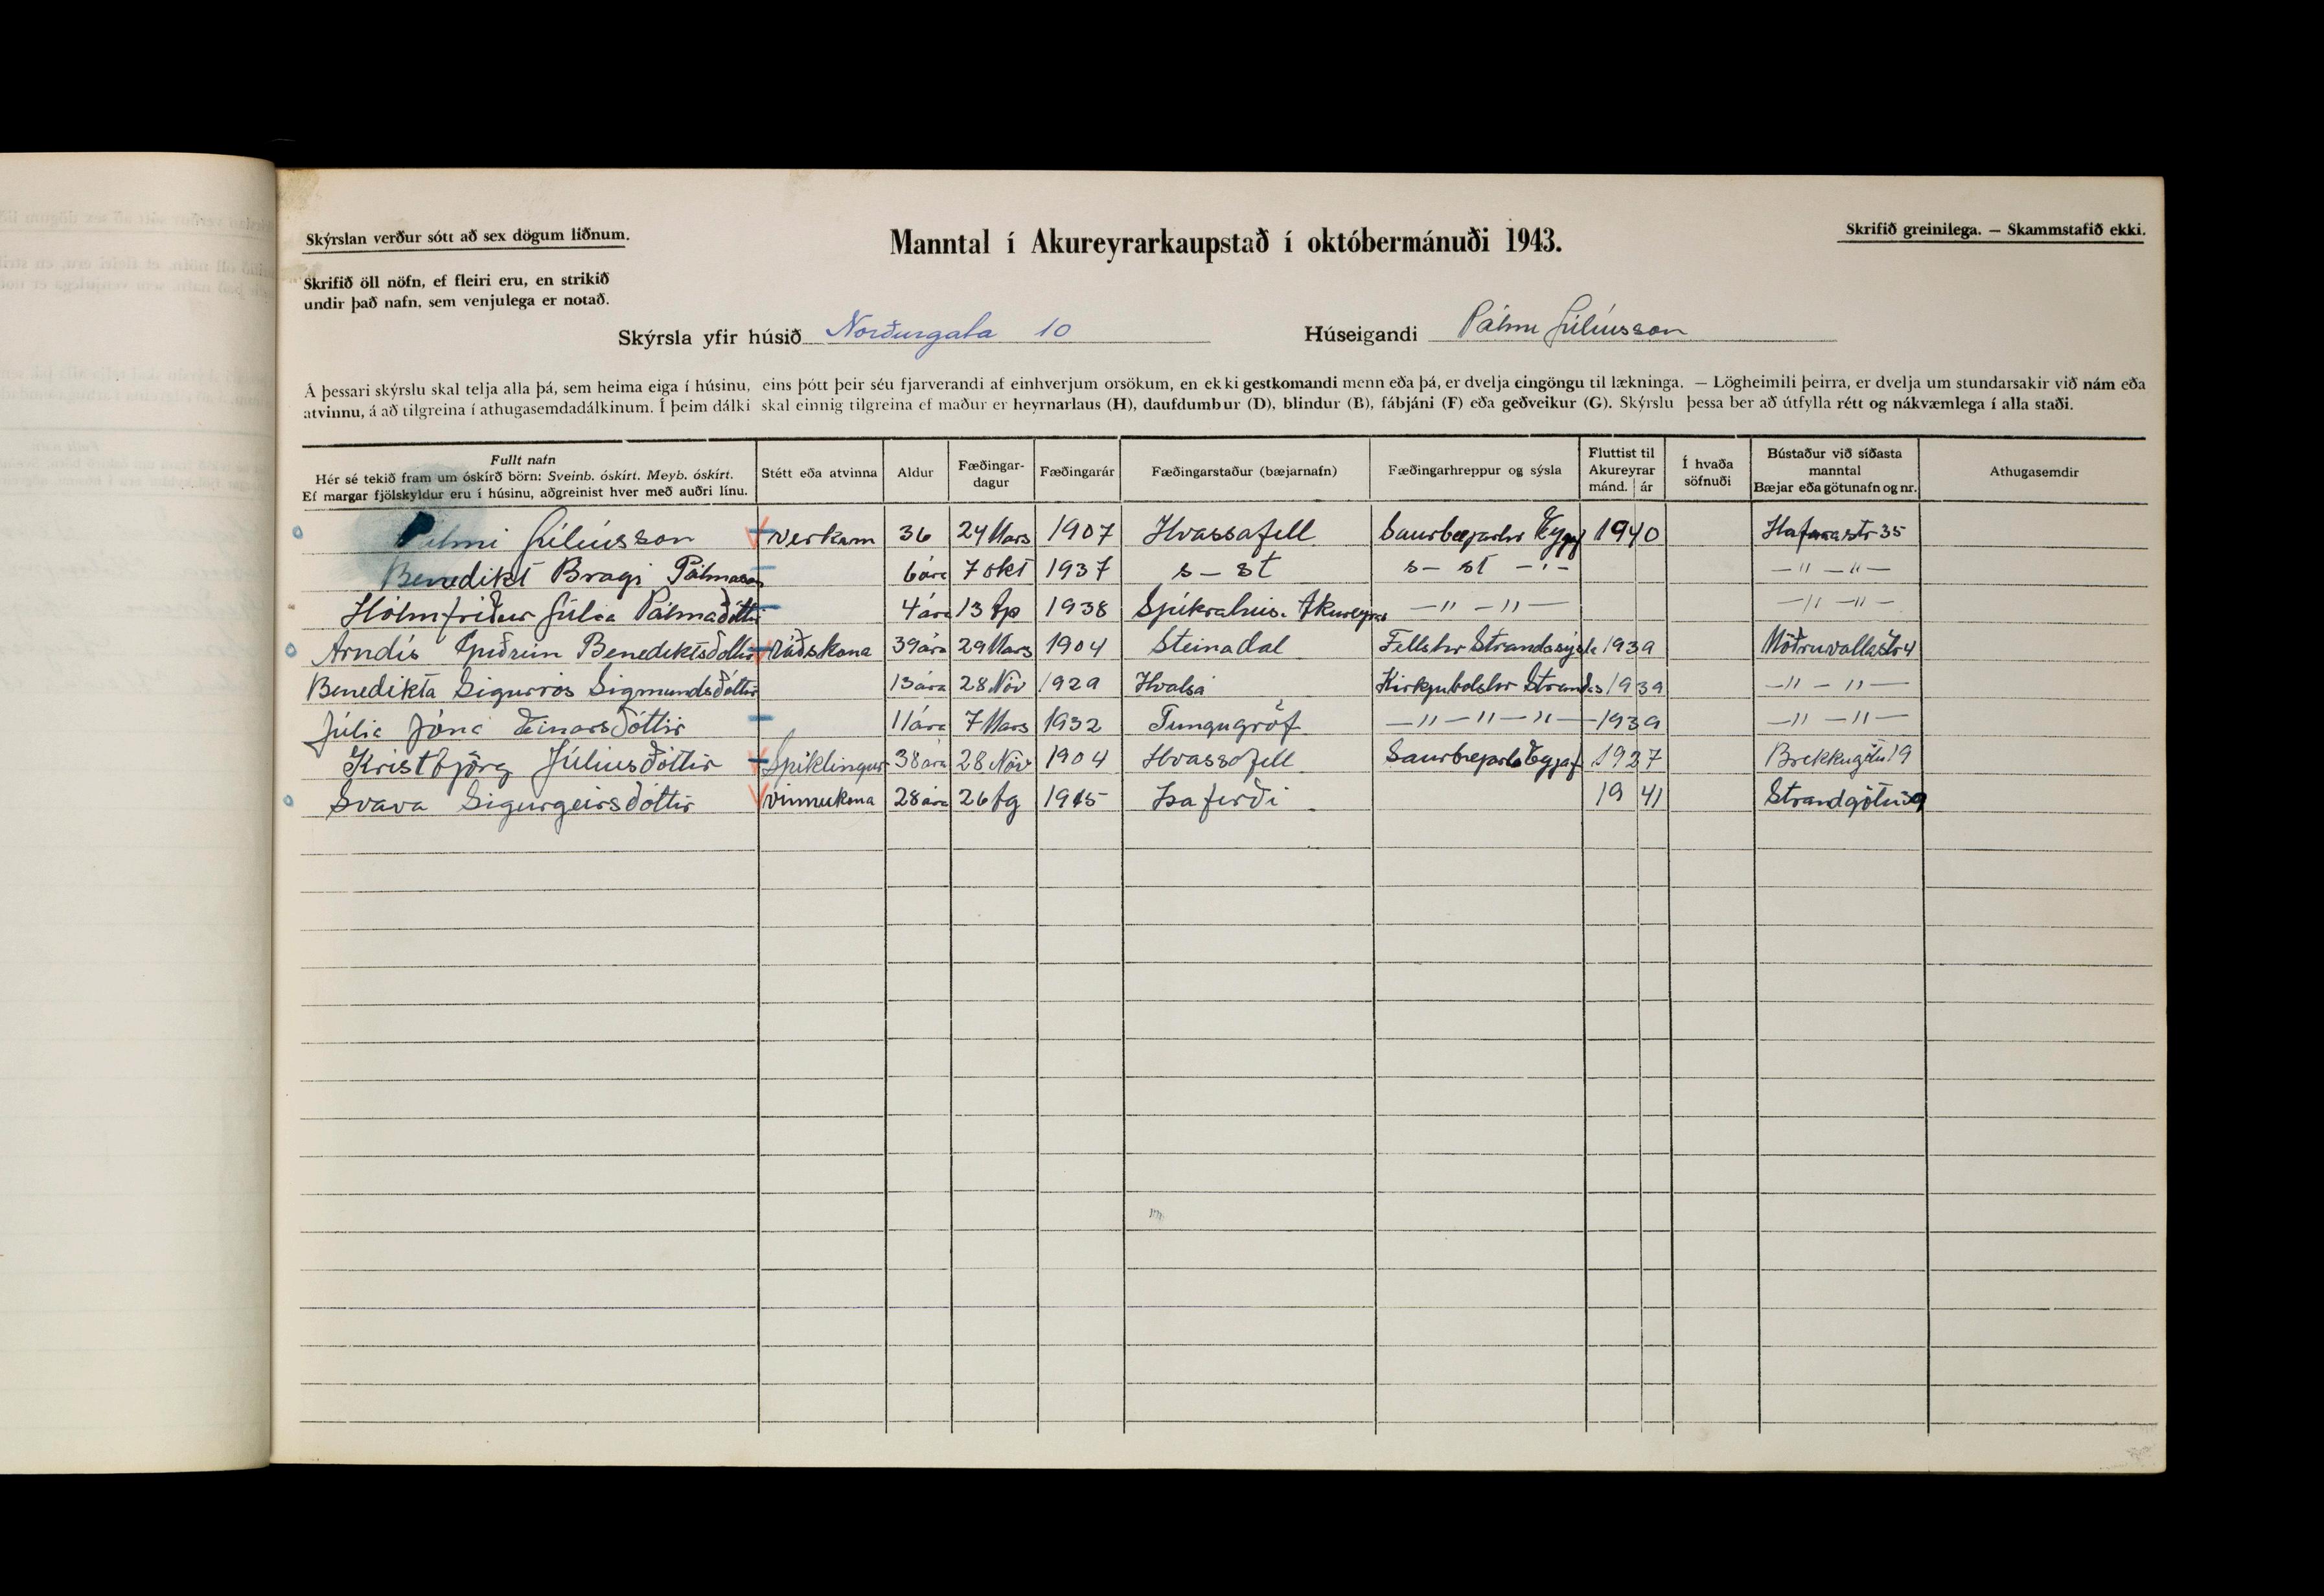 Skýrslan verður sótt að sex dögum liðnum.
Manntal í Akureyrarkaupstað í októbermánuði 1943.
Skrifið greinilega. — Skammstafið ekki.
Skrifið öll nöfn, ef fleiri eru, en strikið
undir það nafn, sem venjulega er notað.
Skýrsla yfir húsið Norðurgata 10 Húseigandi Pálmi Júlíusson
Á þessari skýrslu skal telja alla þá, sem heima eiga í húsinu, eins þótt þeir séu fjarverandi af einhverjum orsökum, en ekki gestkomandi menn eða þá, er dvelja eingöngu til lækninga. — Lögheimili þeirra, er dvelja um stundarsakir við nám eða
atvinnu, á að tilgreina í athugasemdadálkinum. Í þeim dálki skal einnig tilgreina ef maður er heyrnarlaus (H), daufdumbur (D), blindur (B), fábjáni (F) eða geðveikur (G). Skýrslu þessa ber að útfylla rétt og nákvæmlega í alla staði.
Fullt nafn
Hér sé tekið fram um óskírð börn: Sveinb. óskírt. Meyb. óskírt.
Ef margar fjölskyldur eru í húsinu, aðgreinist hver með auðri línu.
Stétt eða atvinna
Aldur
Fæðingar-
dagur
Fæðingarár
Fæðingarstaður (bæjarnafn)
Fæðingarhreppur og sýsla
Fluttist til
Akureyrar
mánd. ár
Í hvaða
söfnuði
Bústaður við síðasta
manntal
Bæjar eða götunafn og nr.
Athugasemdir
Pálmi Júlíusson verkam 36 24 Mars 1907 Hvassafell Saurbæjarhr 1940 Hafnarstr 35
Benedikt Bragi Pálmason 6 ára 7 okt 1937 s – st s – st –"– –"–"–
Hólmfríður Júlía Pálmadóttir 4 ára 13 1938 Spíkrahús. Akureyrar –"–"– –"–"–
Arndís Guðrún Benediktsdóttir ráðskona 39 ára 29 Mars 1904 Steinadal Fellshr Strandasýsla 1939 Möðruvallastr 4
Benedikta Sigurrós Sigmundsdóttir 13 ára 28 Nóv 1929 Hvalsá Kirkjubolshr Strandas 1939 –"–"–
Júlía Jóna Einarsdóttir 11 ára 7 Mars 1932 Tungugröf –"–"–"– 1939 –"–"–
Kristbjörg Júlíusdóttir Sjúklingur 38 ára 28 Nóv 1904 Hvassafell Saurbæjarhr Eyjaf 1927 Brekkugötu 19
Svava Sigurgeirsdóttir vinnukona 28 ára 26 Ág 1915 Ísafirði 1941 Strandgötu 39